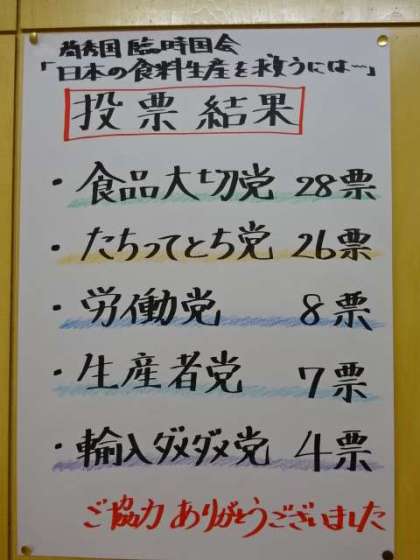 尚秀国臨時国会
「日本の食料生産を救うには…」
投票結果
・食品大切党 28票
・たちってとち党 26票
・労働党 8票
・生産者党 7票
・輸入ダメダメ党 4票
ご協力ありがとうございました